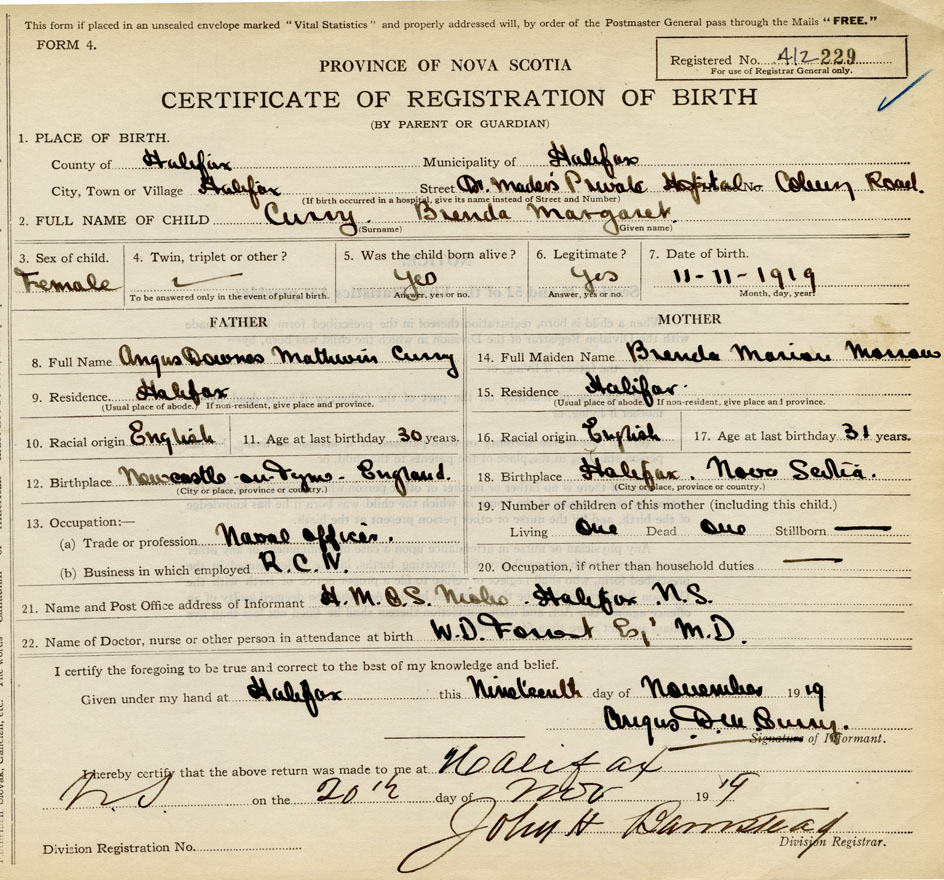 This form if placed in an unsealed envelope marked "Vital Statistics" and properly addressed will, by order of the Postmaster General pass through the Mails "FREE."
FORM 4.
Registered No. 412 229
For use of Registrar General only.
PROVINCE OF NOVA SCOTIA
CERTIFICATE OF REGISTRATION OF BIRTH
(BY PARENT OR GUARDIAN)
1. PLACE OF BIRTH.
County of Halifax Municipality of Halifax
City, Town or Village Halifax Street Dr. Mader's Private Hospital No. Coburg Road.
(If birth occurred in a hospital, give its name instead of Street and Number)
2. FULL NAME OF CHILD Curry. Brenda Margaret.
(Surname) (Given name)
3. Sex of child. 4. Twin, triplet or other? 5. Was the child born alive? 6. Legitimate? 7. Date of birth.
Female Yes Yes 11-11-1919
To be answered only in the event of plural birth. Answer, yes or no. Answer, yes or no. Month, day, year.
FATHER MOTHER
8. Full Name Angus Downes Mathwin Curry 14. Full Maiden Name Brenda Marian
9. Residence. Halifax 15. Residence Halifax.
(Usual place of abode.) If non-resident, give place and province. (Usual place of abode.) If non-resident, give place and province.
10. Racial origin English 11. Age at last birthday 30 years. 16. Racial origin English 17. Age at last birthday 31 years.
12. Birthplace Newcastle-on-Tyne - England. 18. Birthplace Halifax, Nova Scotia.
(City or place, province or country.) (City or place, province or country.)
13. Occupation:— 19. Number of children of this mother (including this child.)
(a) Trade or profession Naval Officer. Living One Dead One Stillborn —
(b) Business in which employed R.C.N. 20. Occupation, if other than household duties —
21. Name and Post Office address of Informant H.M.C.S. Niobe. Halifax N.S.
22. Name of Doctor, nurse or other person in attendance at birth W.D. Forrest Esq. M.D.
I certify the foregoing to be true and correct to the best of my knowledge and belief.
Given under my hand at Halifax this Nineteenth day of November 1919
Angus D.M. Curry.
Signature of Informant.
I hereby certify that the above return was made to me at Halifax
N.S on the 20th day of Nov 19 19
John H Barnstead
Division Registration No. Division Registrar.